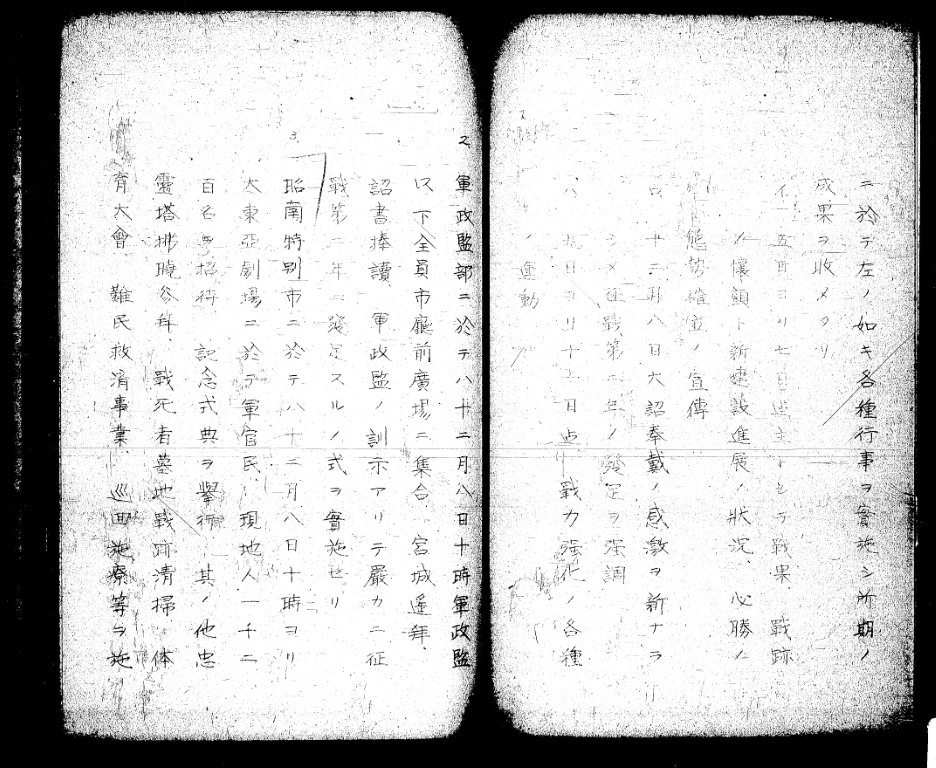 ニ於テ左ノ如キ各種行事ヲ實施シ所期ノ
成果ヲ收メタリ
イ、五日ヨリ七日迄主トシテ戰果、戰跡
ノ懷顧ト新建設進展ノ狀況、必勝ノ
態勢確立ノ宣傳
ロ、十二月八日大詔奉戴ノ感激ヲ新ナラ
シメ征戰第二年ノ發足ヲ强調
ハ、九日ヨリ十五日迄ハ戰力强化ノ各種
ノ運動
2 軍政監部ニ於テハ十二月八日十時軍政監
以下全員市廳前廣場ニ集合 宮城遙拜、
詔書捧讀 軍政監ノ訓示アリテ嚴カニ征
戰第二年ニ發足スルノ式ヲ實施セリ
3 昭南特別市ニ於テハ十二月八日十時ヨリ
大東亞劇場ニ於テ軍官民、現地人一千二
百名ヲ招待 記念式典ヲ擧行 其ノ他忠
靈塔拂曉參拜、戰死者墓地戰跡淸掃、体
育大會 難民救濟事業、巡回施療等ヲ施